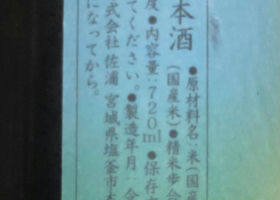 本酒
●原材料名:米(国産
(国産米)●精米歩合
度●内容量:720ml●保存
てください。●製造年月:令
式会社 佐浦 宮城県塩釜市本
になってから。